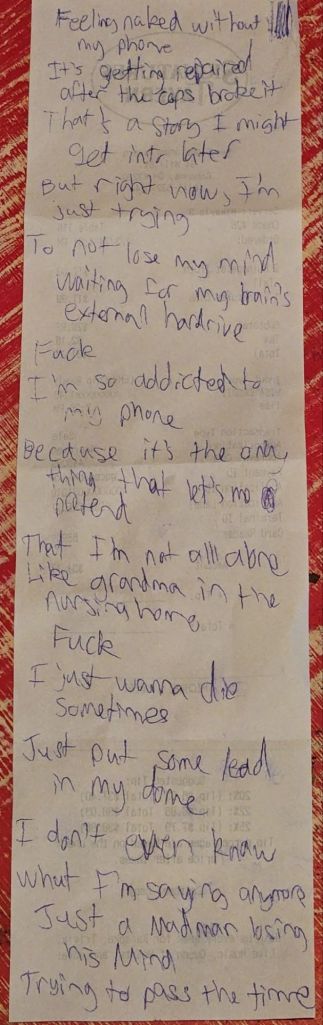 Feeling naked without
my phone
It's getting repaired
after the cops broke it
That's a story I might
get into later
But right now, I'm
just trying
To not lose my mind
waiting for my brain's
external hardrive
Fuck
I'm so addicted to
my phone
Because it's the only
thing that let's me
pretend
That I'm not all alone
Like grandma in the
nursing home
Fuck
I just wanna die
sometimes
Just put some lead
in my dome
I don't even know
what I'm saying anymore
Just a madman losing
his mind
Trying to pass the time